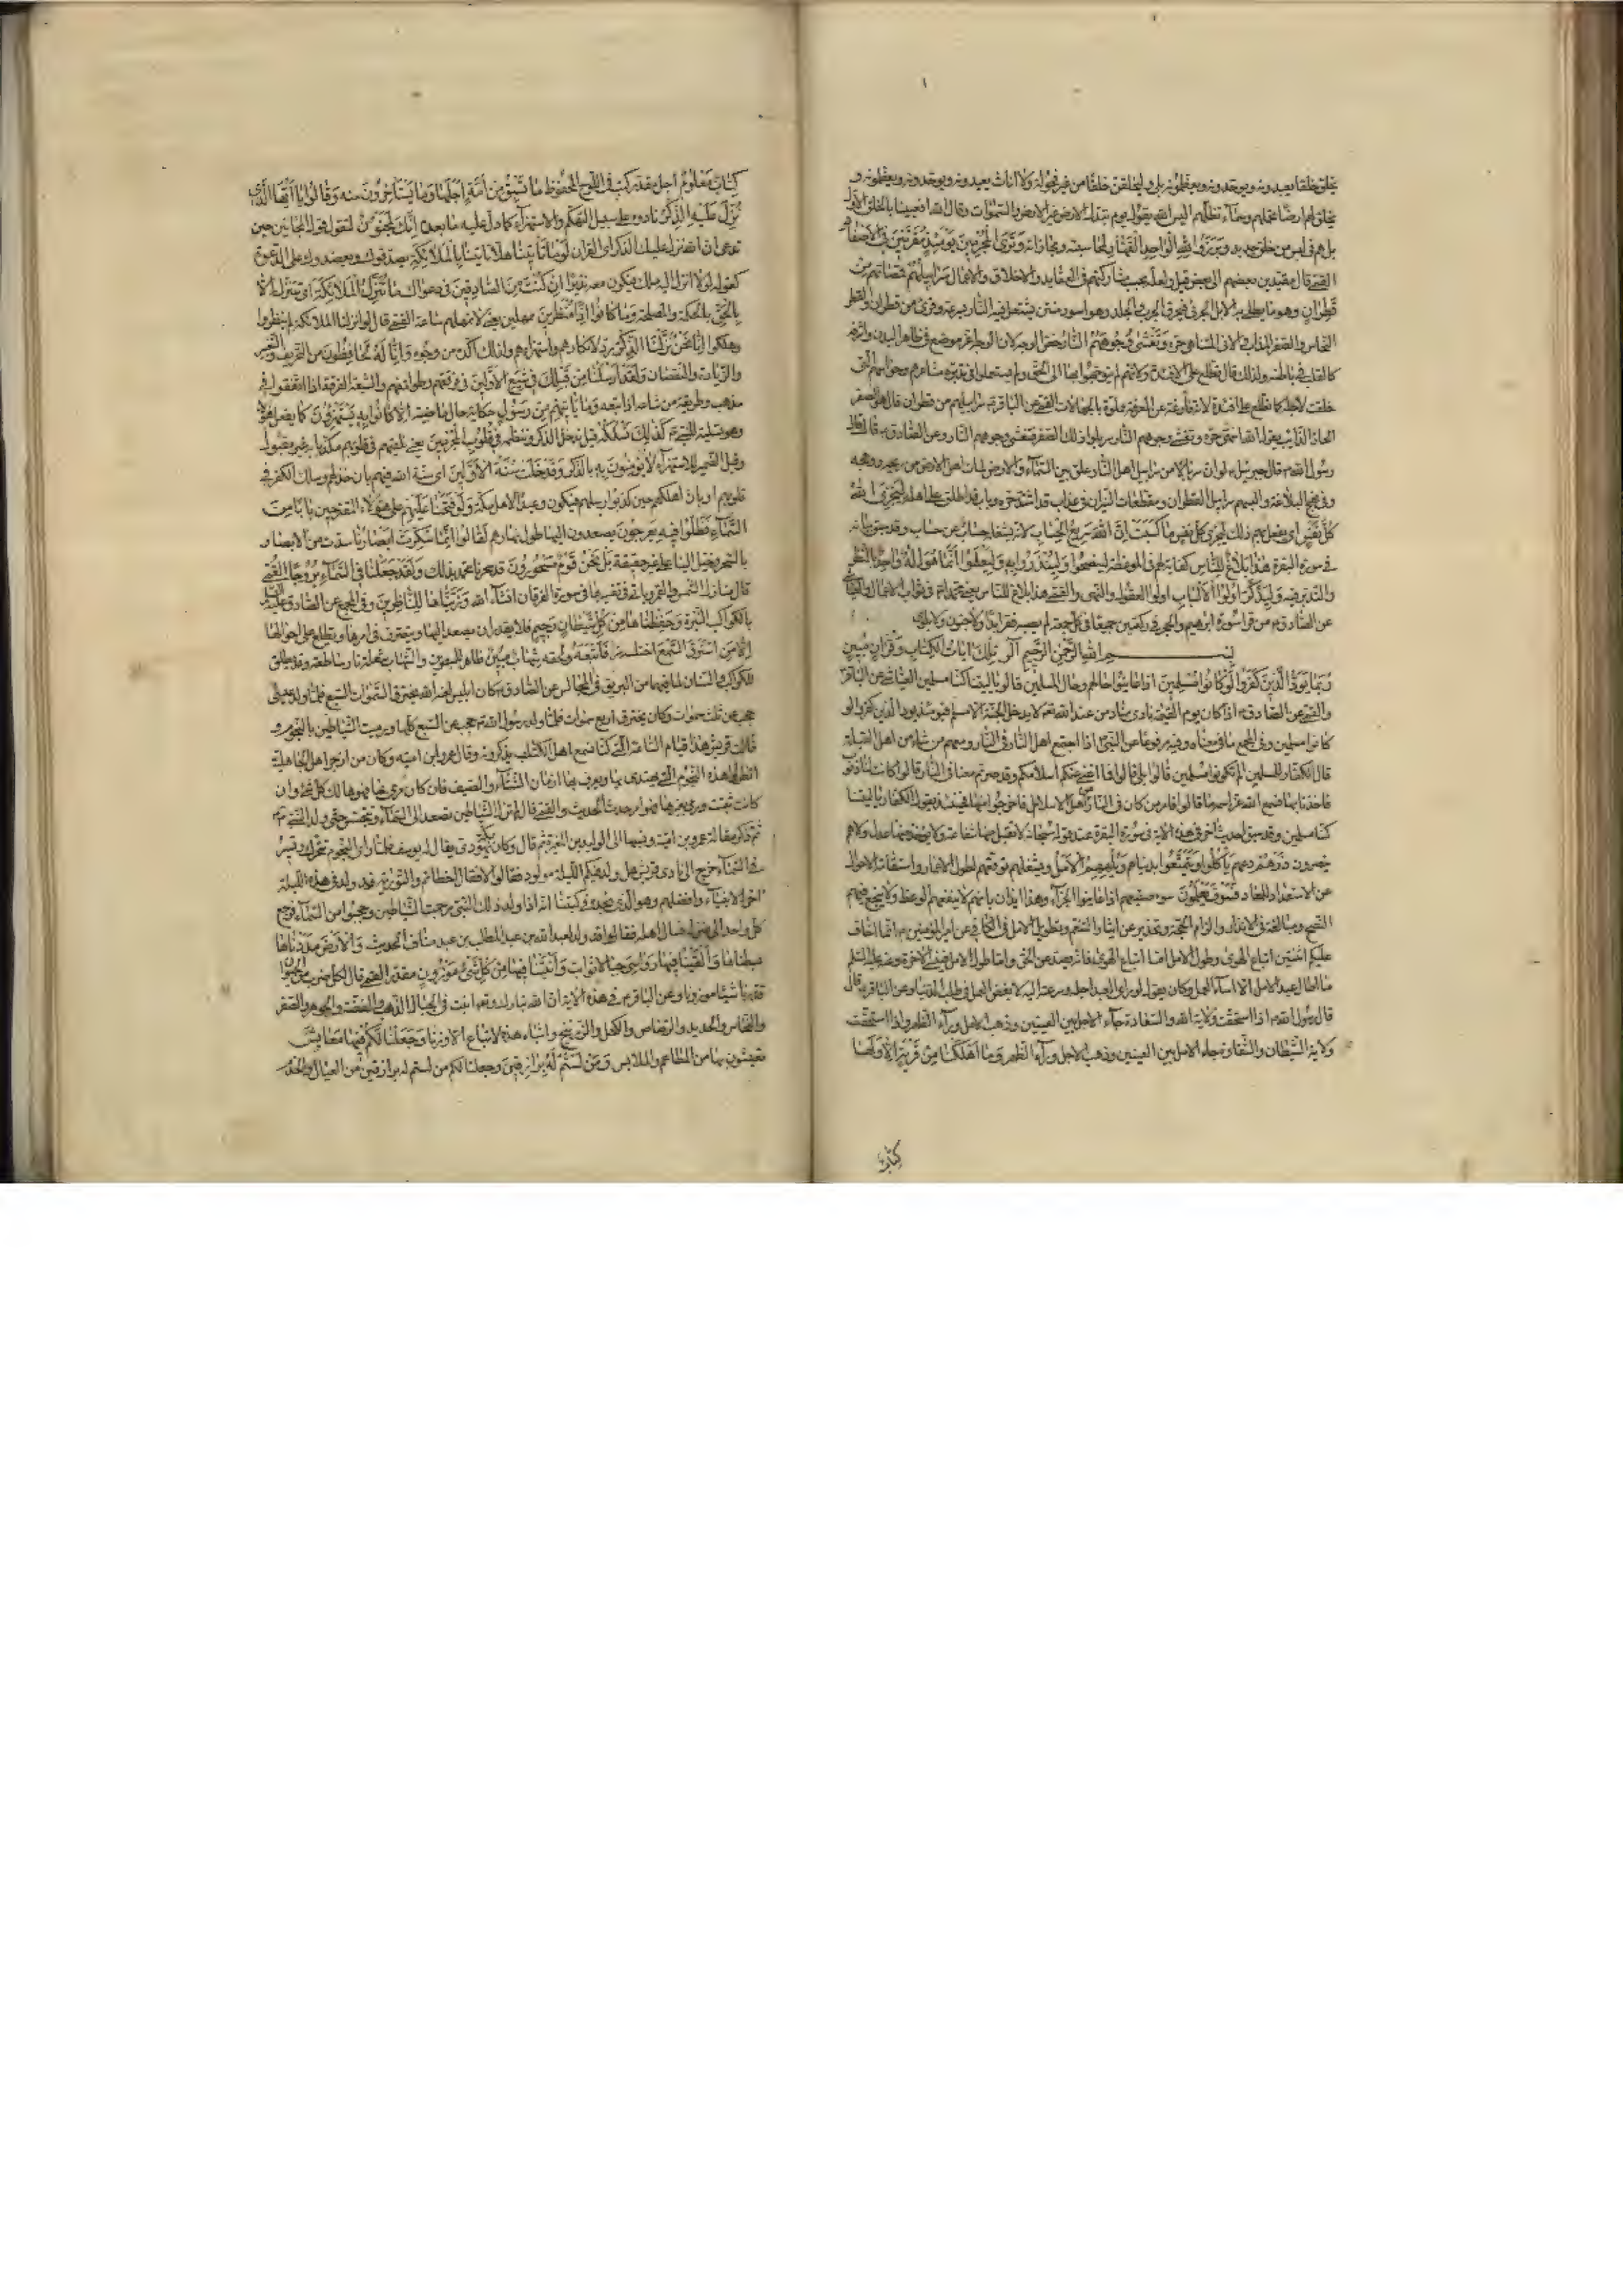 يخلق خلقا يعبدونه ويوحدونه ويعظمونه بلى وليخلقن خلقا من غير فحولة ولا اناث يعبدونه ويوحدونه ويعظمونه و
يخلق لهم ارضا تحملهم وسماء تظلهم اليس الله يقول يوم تبدل الارض غير الارض والسموات وقال الله افعيينا بالخلق الاول
بل هم في لبس من خلق جديد وبرزوا لله الواحد القهار لمحاسبته ومجازاته وترى المجرمين يومئذ مقرنين في الاصفاد
القمي قال مقيدين بعضهم الى بعض قيل ولعله بحسب مشاركتهم في العقايد والاخلاق والاعمال سرابيلهم قمصانهم من
قطران وهو ما يطلى به الابل الجربى فيحرق الجرب والجلد وهو اسود منتن يشتعل فيه النار بسرعة وقرئ من قطران والقطر
النحاس والصفر المذاب والاني المتناهي حره وتغشى وجوههم النار
كالقلب في باطنه ولذلك قال تطلع على الافئدة ولانهم لم يتوجهوا بها الى الحق ولم يستعملوا في تدبره مشاعرهم وحواسهم التي
خلقت لاجله كما تطلع على افئدة لانها فارغة عن المعرفة مملوة بالجهالات القمي عن الباقر سرابيلهم من قطران قال هو الصفر
الحار الذائب يقول الله انتهى حره وتغشى وجوههم النار سربلوا ذلك الصفر فتغشى وجوههم النار وعن الصادق قال قال
رسول الله قال جبرئيل لو ان سربالا من سرابيل اهل النار علق بين السماء والارض لمات اهل الارض من ريحه ووهجه
وفي نهج البلاغة والبسهم سرابيل القطران ومقطعات النيران في عذاب قد اشتد حره وباب قد اطبق على اهله ليجزي الله
كل نفس اي يفعل بهم ذلك ليجزي كل نفس ما كسبت ان الله سريع الحساب لانه لا يشغله حساب عن حساب وقد سبق بيانه
في سورة البقرة هذا بلاغ للناس كفاية لهم في الموعظة لينصحوا ولينذروا به وليعلموا انما هو اله واحد بالنظر
والتدبر فيه وليذكر اولوا الالباب اولوا العقول والنهى والقمي هذا بلاغ للناس يعني محمدا في ثواب الاعمال والعياشي
عن الصادق من قرا سورة ابرهيم والحجر في ركعتين جميعا في كل جمعة لم يصبه فقر ابدا ولا جنون ولا بلوى
بسم الله الرحمن الرحيم الر تلك ايات الكتاب وقران مبين
ربما يود الذين كفروا لو كانوا مسلمين اذا عاينوا حالهم وحال المسلمين قالوا يا ليتنا كنا مسلمين العياشي عن الباقر
والقمي عن الصادق اذا كان يوم القيمة نادى مناد من عند الله لا يدخل الجنة الا مسلم فيومئذ يود الذين كفروا لو
كانوا مسلمين وفي المجمع ما في معناه وفيه مرفوعا عن النبي اذا اجتمع اهل النار في النار ومعهم من شاء من اهل القبلة
قال الكفار للمسلمين الم تكونوا مسلمين قالوا بلى قالوا فما اغنى عنكم اسلامكم وقد صرتم معنا في النار قالوا كانت لنا ذنوب
فاخذنا بها فسمع الله عز اسمه ما قالوا فامر من كان في النار من اهل الاسلام فاخرجوا منها فحينئذ يقول الكفار يا ليتنا
كنا مسلمين وقد سبق لحديث اخر في هذه الاية في سورة البقرة عند قوله سبحانه لا تقبل منها شفاعة ولا يؤخذ منها عدل ولا هم
ينصرون ذرهم دعهم ياكلوا ويتمتعوا بدنياهم ويلههم الامل ويشغلهم توقعهم لطول الاعمار واستقامة الاحوال
عن الاستعداد للمعاد فسوف يعلمون سوء صنيعهم اذا عاينوا الجزاء وهذا ايذان بانهم لا ينفعهم الوعظ ولا ينجع فيهم
النصح ومبالغة في الانذار والزام للحجة وتحذير عن ايثار التنعم وتطويل الامل في الكافي عن امير المؤمنين انما اخاف
عليكم اثنتين اتباع الهوى وطول الامل اما اتباع الهوى فانه يصد عن الحق واما طول الامل فينسي الاخرة وعنه عليه السلم
ما اطال عبد الامل الا اساء العمل وكان يقول لو راى العبد اجله وسرعته اليه لابغض العمل في طلب الدنيا وعن الباقر قال
قال رسول الله اذا استحقت ولاية الله والسعادة جاء الاجل بين العينين وذهب الامل وراء الظهر واذا استحقت
ولاية الشيطان والشقاوة جاء الامل بين العينين وذهب الاجل وراء الظهر وما اهلكنا من قرية الا ولها
كتاب
كتاب معلوم اجل مقدر كتب في اللوح المحفوظ ما تسبق من امة اجلها وما يستاخرون عنه وقالوا يا ايها الذي
نزل عليه الذكر نادوه على سبيل التهكم والاستهزاء كما دل عليه ما بعده انك لمجنون لتقول قول المجانين حين
تدعي ان الله نزل عليك الذكر اي القران لو ما تاتينا هلا تاتينا بالملائكة يصدقونك ويعضدونك على الدعوة
كقوله لولا انزل اليه ملك فيكون معه نذيرا ان كنت من الصادقين في دعواك ما ننزل الملائكة اي تتنزل الا
بالحق بالحكمة والمصلحة وما كانوا اذا منظرين ممهلين يعني لا نمهلهم ساعة القمي قال لو انزلنا الملائكة لم ينظروا
وهلكوا انا نحن نزلنا الذكر رد لانكارهم واستهزائهم ولذلك اكده من وجوه وانا له لحافظون من التحريف والتغيير
والزيادة والنقصان ولقد ارسلنا من قبلك في شيع الاولين في فرقهم وطوائفهم والشيعة الفرقة اذا اتفقوا في
مذهب وطريقة من شاعه اذا تبعه وما ياتيهم من رسول حكاية حال ماضية الا كانوا به يستهزؤن كما يفعل هؤلاء
وهو تسلية للنبي كذلك نسلكه قيل ندخل الذكر وننظمه في قلوب المجرمين يعني نلقيه في قلوبهم مكذبا به غير مقبول
وقيل الضمير للاستهزاء لا يؤمنون به بالذكر وقد خلت سنة الاولين اي سنة الله فيهم بان خذلهم وسلك الكفر في
قلوبهم او بان اهلكهم حين كذبوا رسلهم فيكون وعيدا لاهل مكة ولو فتحنا عليهم على هؤلاء المقترحين بابا من
السماء فظلوا فيه يعرجون يصعدون اليها طول نهارهم لقالوا انما سكرت ابصارنا سدت من الابصار
بالسحر وخيل الينا على غير حقيقة بل نحن قوم مسحورون قد سحرنا محمد بذلك ولقد جعلنا في السماء بروجا القمي
قال منازل الشمس والقمر وياتي تفسيرها في سورة الفرقان انشاء الله وزيناها للناظرين وفي المجمع عن الصادق عليه السلم
بالكواكب النيرة وحفظناها من كل شيطان رجيم فلا يقدر ان يصعد اليها ويتصرف في امرها ويطلع على احوالها
الا من استرق السمع اختلسه سرا فاتبعه ولحقه شهاب مبين ظاهر للمبصرين والشهاب شعلة نار ساطعة وقد يطلق
للكوكب والسنان لما فيهما من البريق في المجالس عن الصادق كان ابليس لعنه الله يخترق السموات السبع فلما ولد عيسى
حجب عن ثلث سموات وكان يخترق اربع سموات فلما ولد رسول الله حجب عن السبع كلها ورميت الشياطين بالنجوم و
قالت قريش هذا قيام الساعة التي كنا نسمع اهل الكتاب يذكرونه وقال عمرو بن امية وكان من ازجر اهل الجاهلية
انظروا هذه النجوم التي يهتدى بها ويعرف بها ازمان الشتاء والصيف فان كان رمي بها فهو هلاك كل شيء وان
كانت ثبتت ورمي بغيرها فهو امر حدث الحديث والقمي قال لم تزل الشياطين تصعد الى السماء وتتجسس حتى ولد النبي
ثم ذكر مقالة عمرو بن امية ونسبها الى الوليد بن المغيرة ثم قال وكان بمكة يهودي يقال له يوسف فلما راى النجوم تتحرك وتسير
في السماء خرج الى نادي قريش هل ولد فيكم الليلة مولود فقالوا لا فقال اخطاتم والتورية قد ولد في هذه الليلة
اخر الانبياء وافضلهم وهو الذي نجده في كتبنا انه اذا ولد ذلك النبي رجمت الشياطين وحجبوا من السماء فرجع
كل واحد الى منزله فسال اهله فقالوا قد ولد لعبد الله بن عبد المطلب بن عبد مناف الحديث والارض مددناها
بسطناها والقينا فيها رواسي جبالا ثوابت وانبتنا فيها من كل شيء موزون مقدر القمي قال لكل ضرب من الحيوان
قدرنا شيئا موزونا وعن الباقر في هذه الاية ان الله تبارك وتعالى انبت في الجبال الذهب والفضة والجوهر والصفر
والنحاس والحديد والرصاص والكحل والزرنيخ واشباه هذه لا تباع الا وزنا وجعلنا لكم فيها معايش
تعيشون بها من المطاعم والملابس ومن لستم له برازقين وجعلنا لكم من لستم له برازقين من العيال والخدم